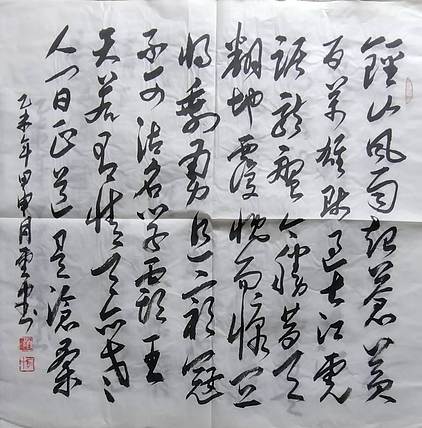 鍾山風雨起蒼黃
百萬雄師過大江虎
踞龍盤今勝昔天
翻地覆慨而慷宜
將剩勇追窮寇
不可沽名學霸王
天若有情天亦老
人間正道是滄桑
乙未年甲申月